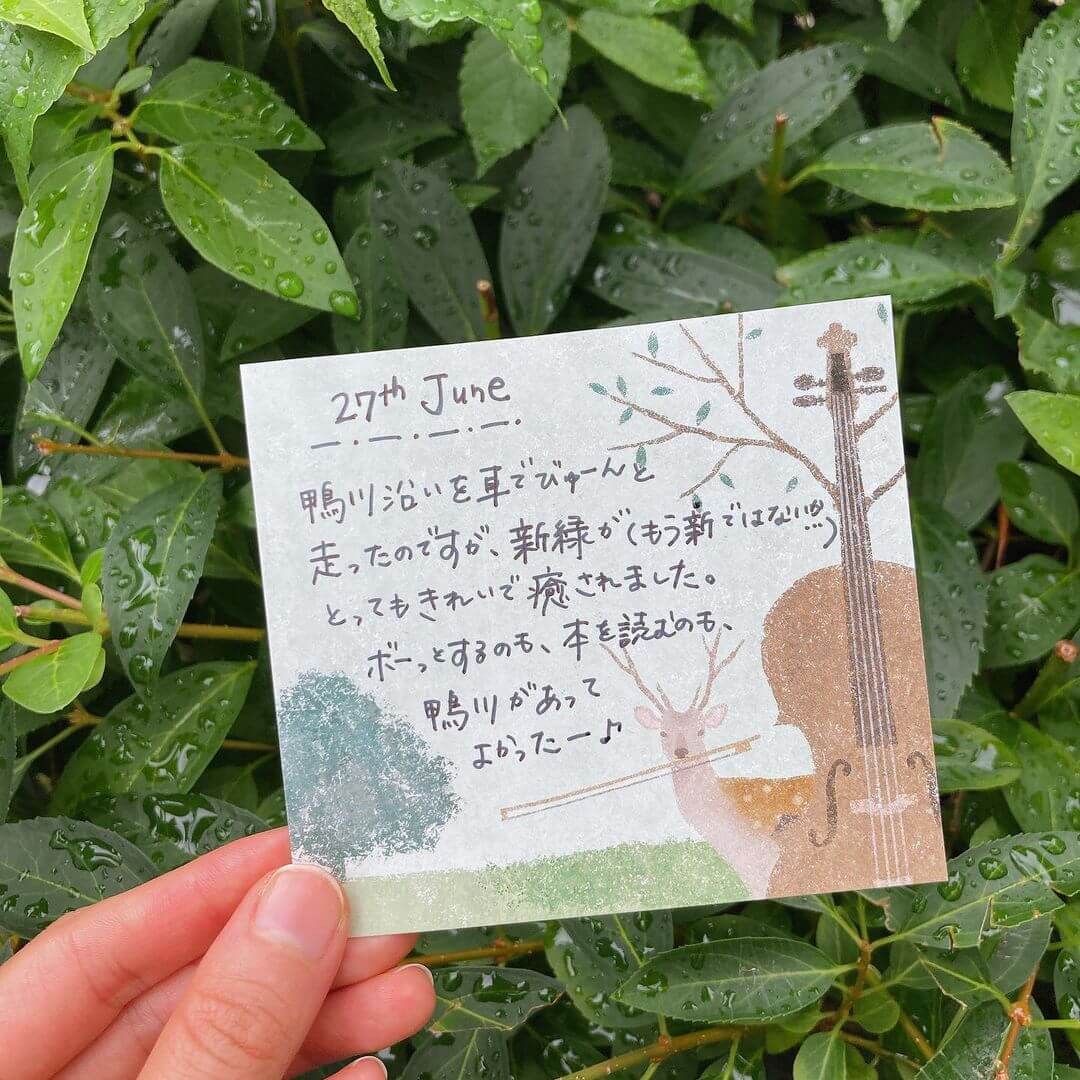 27th June
鴨川沿いを車でびゅーんと
走ったのですが、新緑が(もう新ではない!?)
とってもきれいで癒されました。
ボーっとするのも、本を読むのも、
鴨川があって
よかったー♪